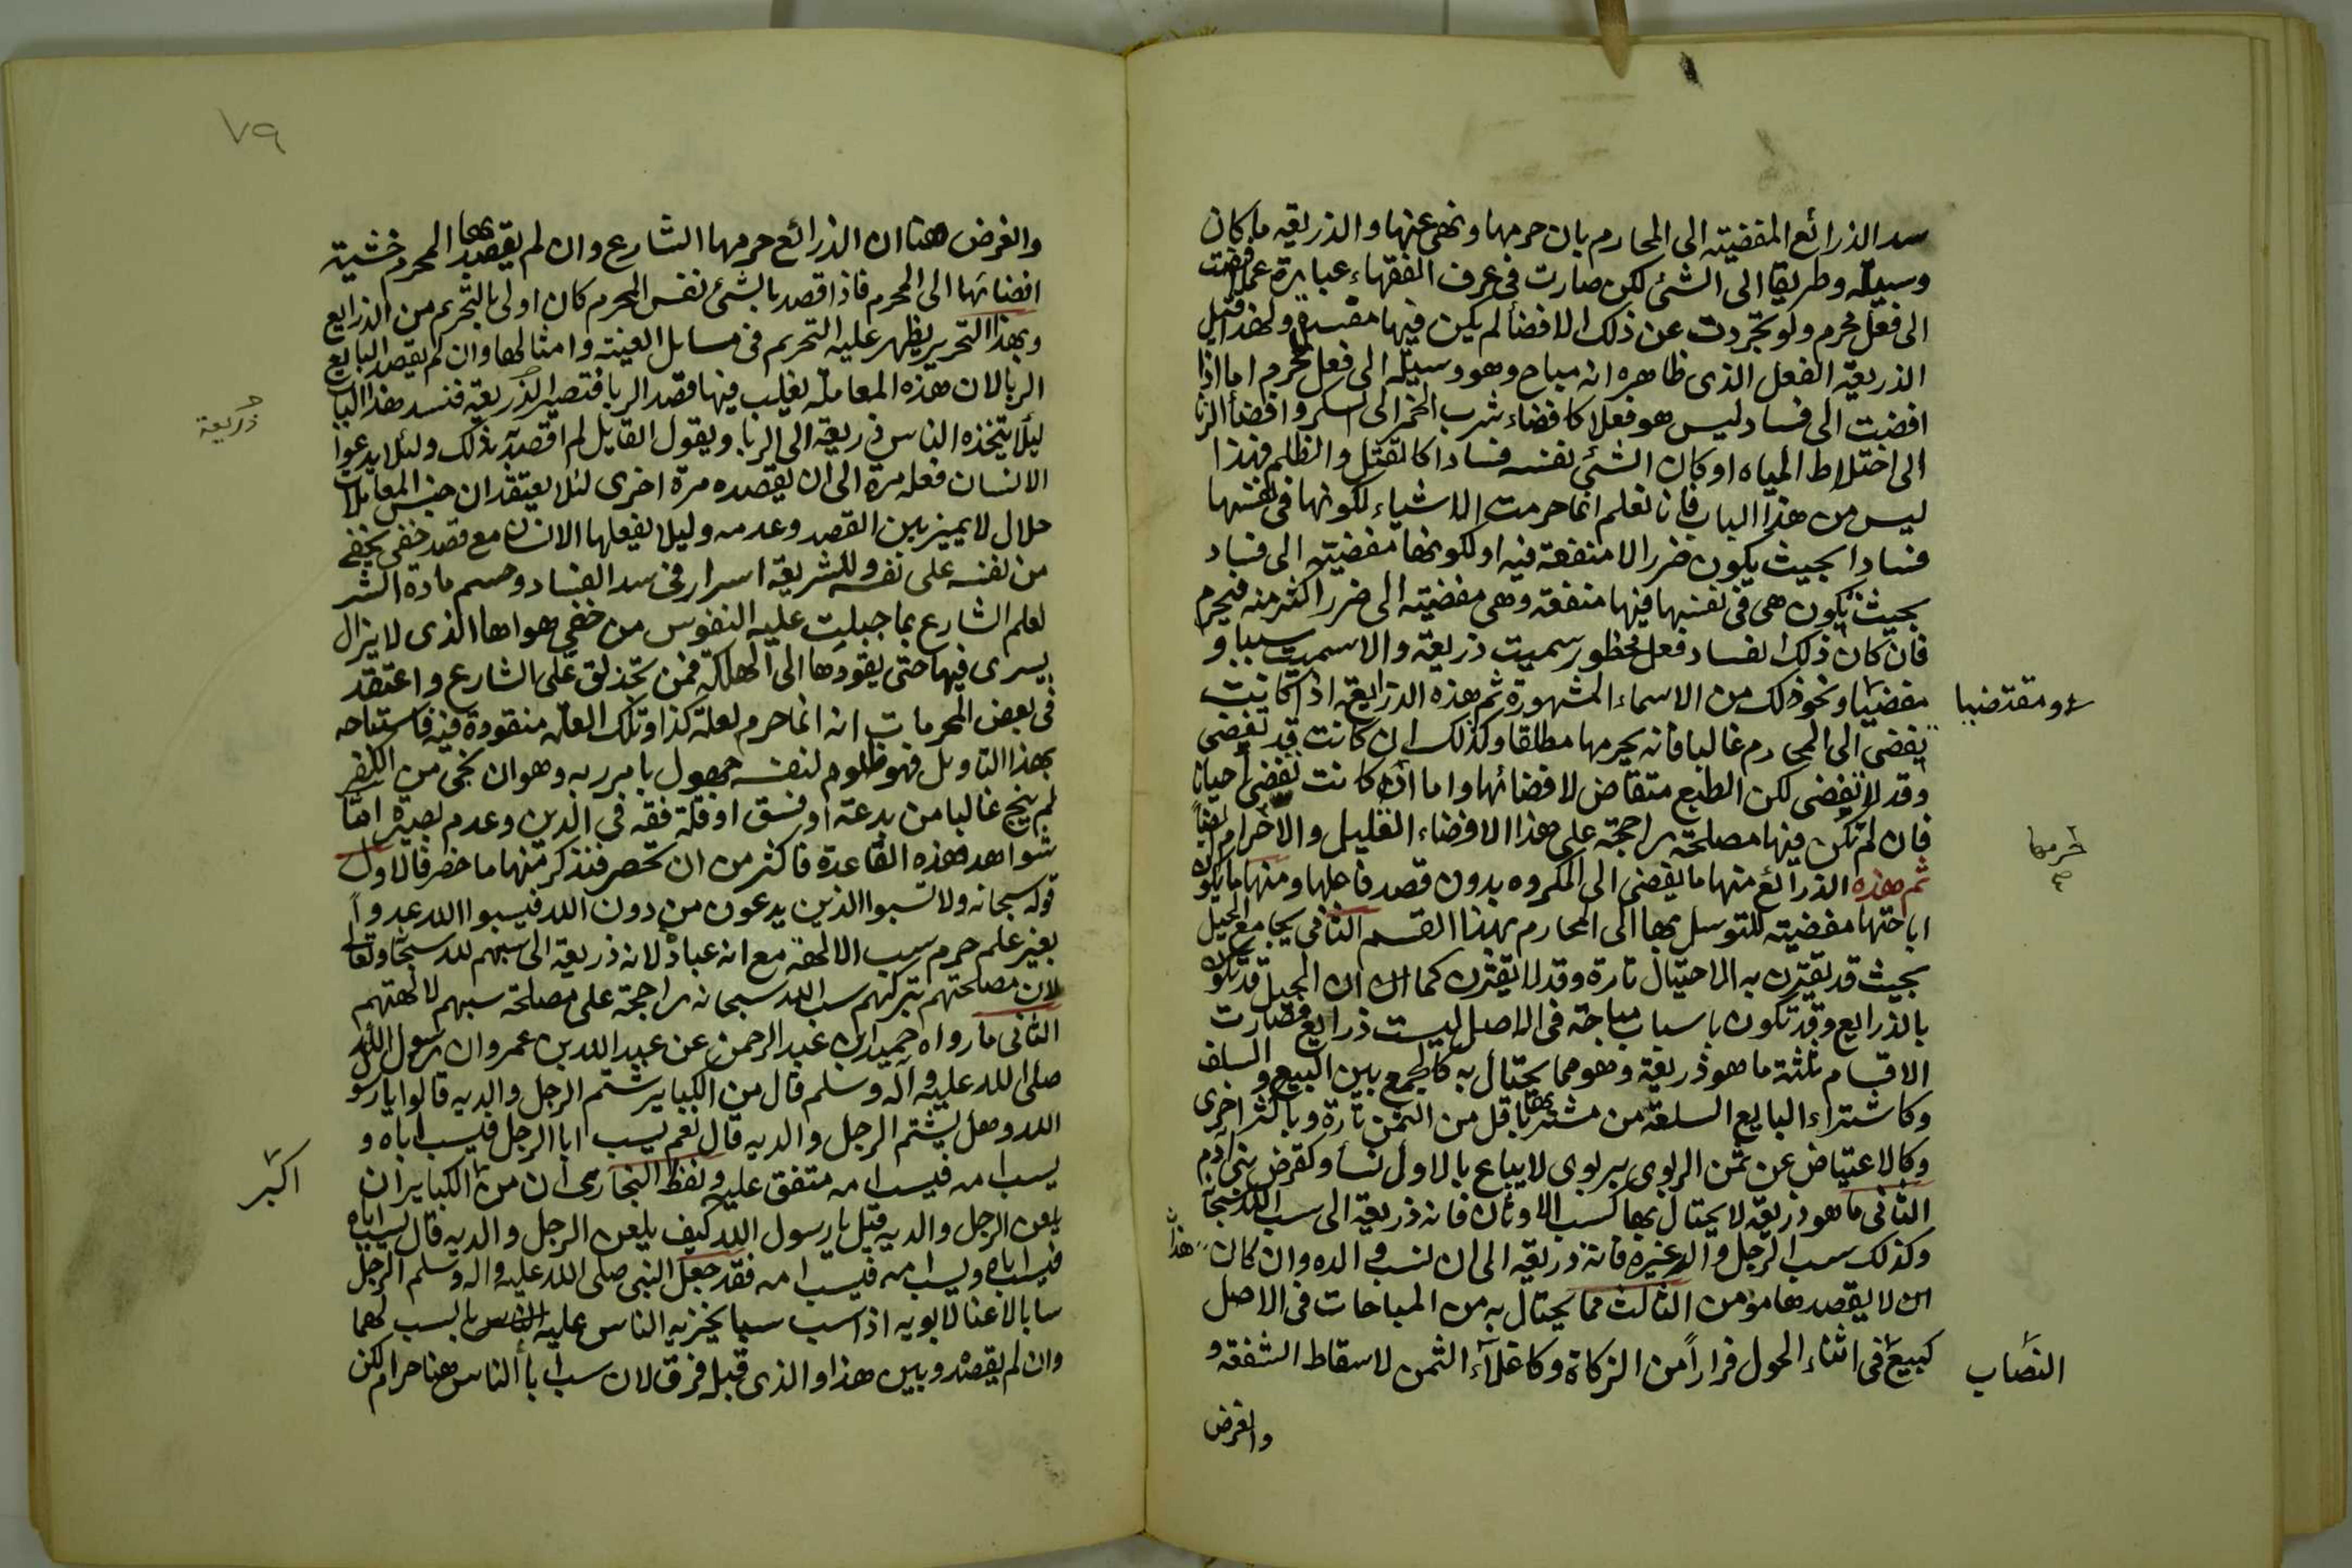 سد الذرائع المفضية الى المحارم بان حرمها ونهى عنها والذريعة ما كان
وسيلة وطريقا الى الشئ لكن صارت فى عرف الفقهاء عبارة عما افضت
الى فعل محرم ولو تجردت عن ذلك الافضا لم يكن فيها مفسدة ولهذا قيل
الذريعة الفعل الذى ظاهره انه مباح وهو وسيلة الى فعل محرم اما اذا
افضت الى فساد ليس هو فعلا كافضاء شرب الخمر الى السكر وافضأ الزنا
الى اختلاط المياه او كان الشئ نفسه فسادا كالقتل والظلم فهذا
ليس من هذا الباب فانا نعلم انما حرمت الاشياء لكونها فى نفسها
فسادا بحيث يكون ضررا لا منفعة فيه او لكونها مفضية الى فساد
بحيث يكون هى فى نفسها فيها منفعة وهى مفضية الى ضرر اكثر منه فيحرم
فان كان ذلك الفساد فعل محظور سميت ذريعة والا سميت سببا و
مفضيا ونحو ذلك من الاسماء المشهورة ثم هذه الذرايع اذا كانت
ومقتضيا
يفضى الى المحارم غالبا فانه يحرمها مطلقا وكذلك ان كانت قد تفضى
وقد لا تفضى لكن الطبع متقاض لافضائها واما ان كانت تفضى احيانا
فان لم تكن فيها مصلحة راجحة على هذا الافضاء القليل والا حرام ايضاً
حرمها
ثم هذه الذرائع منها ما يفضى الى المكروه بدون قصد فاعلها ومنها ما يكون
اباحتها مفضية للتوسل بها الى المحارم بهذا القسم الثانى يجامع الحيل
بحيث قد يقترن به الاحتيال تارة وقد لا يقترن كما ان الحيل قد تكون
بالذرايع وقد تكون باسباب مباحة فى الاصل ليست ذرايع فصارت
الاقسام ثلثة ما هو ذريعة وهو مما يحتال به كالجمع بين البيع والسلف
وكاشتراء البايع السلعة من مشتريها باقل من الثمن تارة وباكثر اخرى
وكالاعتياض عن ثمن الربوى بربوى لا يباع بالاول نسأ وكقرض بنى آدم
الثانى ما هو ذريعة لا يحتال بها كسب الاوثان فانه ذريعة الى سب الله سبحانه
وكذلك سب الرجل والد غيره فانه ذريعة الى ان يسب والده وان كان هذان
ان لا يقصدها مؤمن الثالث مما يحتال به من المباحات فى الاصل
كبيع فى اثناء الحول فراراً من الزكاة وكاغلآء الثمن لاسقاط الشفعة و
النصاب
والغرض
٧٩
والغرض هنا ان الذرائع حرمها الشارع وان لم يقصد بها المحرم خشية
افضائها الى المحرم فاذا قصد بالشئ نفس المحرم كان اولى بالتحريم من الذرايع
وبهذا التحرير يظهر عليه التحريم فى مسايل العينة وامثالها وان لم يقصد البايع
الربا لان هذه المعاملة يغلب فيها قصد الربا فتصير الذريعة فنسد هذا الباب
ذريعة
ليلا يتخذه الناس ذريعة الى الربا ويقول القايل لم اقصد به ذلك ولئلا يدعوا
الانسان فعله مرة الى ان يقصده مرة اخرى لئلا يعتقد ان جنس المعاملات
حلال لا يميز بين القصد وعدمه وليلا يفعلها الانسان مع قصد خفى يخفى
من نفسه على نفسه وللشريعة اسرار فى سد الفساد وحسم مادة الشر
لعلم الشارع بما جبلت عليه النفوس من خفى هواها الذى لا يزال
يسرى فيها حتى يقودها الى الهلكة فمن تحذلق على الشارع واعتقد
فى بعض المحرمات انه انما حرم لعلة كذا وتلك العلة مفقودة فيه فاستباحه
بهذا التاويل فهو ظلوم لنفسه جهول بامر ربه وهو ان نجى من الكفر
لم ينج غالبا من بدعة او فسق او قلة فقه فى الدين وعدم بصيرة اما
شواهد هذه القاعدة فاكثر من ان تحصر فنذكر منها ما حضر فالاول
قوله سبحانه ولا تسبوا الذين يدعون من دون الله فيسبوا الله عدواً
بغير علم حرم سب الالهة مع انه عبادة لانه ذريعة الى سبهم لله سبحانه وتعالى
لان مصلحتهم بتركهم سب الله سبحانه راجحة على مصلحة سبهم لالهتهم
الثانى ما رواه حميد بن عبد الرحمن عن عبد الله بن عمرو ان رسول الله
صلى الله عليه وآله وسلم قال من الكباير شتم الرجل والديه قالوا يا رسول
الله وهل يشتم الرجل والديه قال نعم يسب ابا الرجل فيسب اباه و
يسب امه فيسب امه متفق عليه ولفظ البخارى ان من الكباير ان
اكبر
يلعن الرجل والديه قيل يا رسول الله كيف يلعن الرجل والديه قال يسب اباه
فيسب اباه ويسب امه فيسب امه فقد جعل النبى صلى الله عليه واله وسلم الرجل
سابا لاعنا لابويه اذا سب سبا يجزيه الناس عليه بالسب لهما
وان لم يقصده وبين هذا والذى قبله فرق لان سب ابا الناس هنا حرام لكن